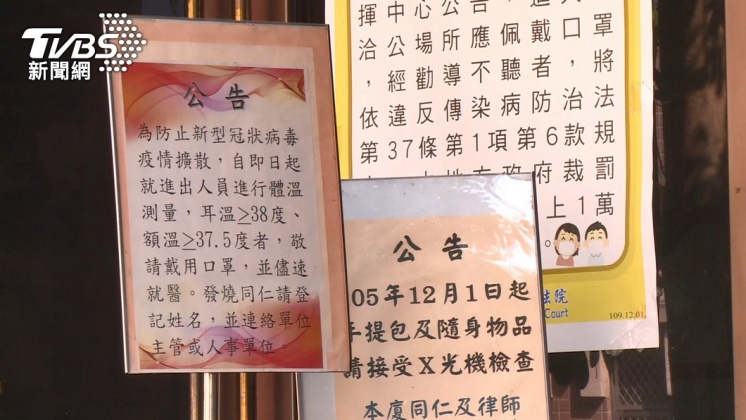 TVBS
新聞網
公告
為防止新型冠狀病毒
疫情擴散，自即日起
就進出人員進行體溫
測量，耳溫≥38度、
額溫≥37.5度者，敬
請戴用口罩，並儘速
就醫。發燒同仁請登
記姓名，並連絡單位
主管或人事單位。
揮中心公告，進入
洽公場所應佩戴口罩
，經勸導不聽者，將
依違反傳染病防治法
第37條第1項第6款規
政府裁罰
上1萬
。
法院
Court
109.12.01
公告
05年12月1日起
手提包及隨身物品
請接受X光機檢查
本廈同仁及律師